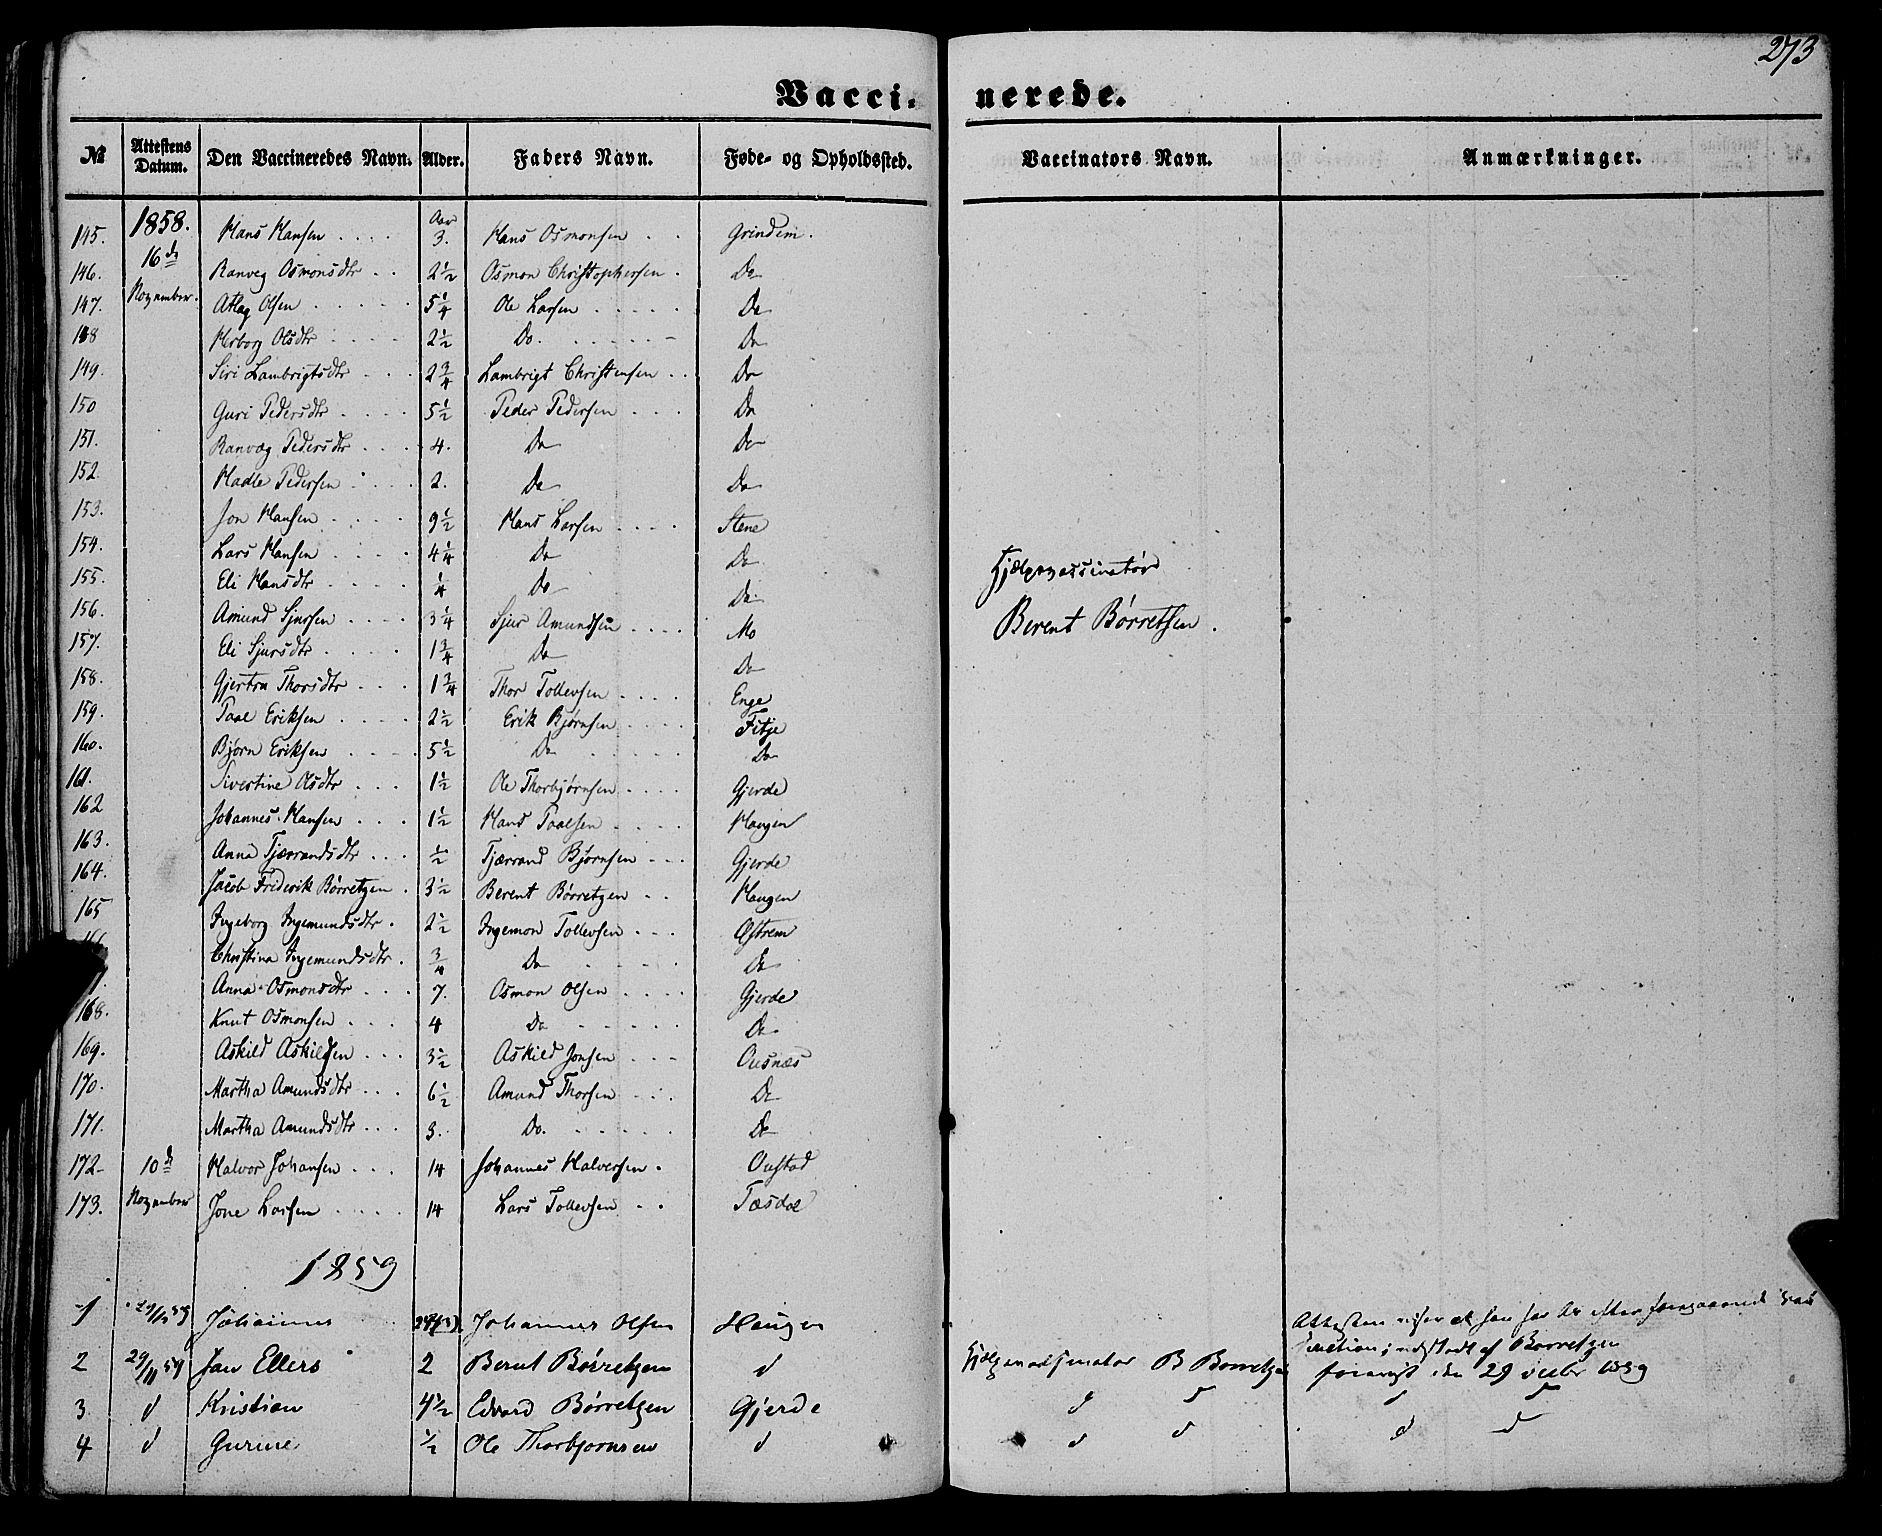 273
Vacci- nerede.
№ Attestens Datum. Den Vaccineredes Navn. Alder. Faders Navn. Føde- og Opholdssted. Vaccinators Navn. Anmærkninger.
1858. Aar
145. Hans Hansen .... 3. Hans Osmonsen .. Grindem.
16de
146. Ranveg Osmonsdtr .. 2 1/2 Osmon Christophersen . Do
147. November. Atlag Olsen ..... 5 1/4 Ole Larsen ..... Do
148 Herborg Olsdtr .... 2 1/2 Do. ...... Do
149. Siri Lambrigtsdtr ... 2 3/4 Lambrigt Christensen .. Do
150 Guri Pedersdtr .... 5 1/2 Peder Pedersen ... Do
151. Ranvæg Pedersdtr ... 4. Do Do
152. Hadle Pedersen .... 2. Do Do
153. Jon Hansen .... 9 1/2 Hans Larsen .... Stene
154. Lars Hansen .... 4 1/4 Do Do
155. Eli Hansdtr .... 1/4 Do Do
Hjælpevassinatør
156. Amund Sjursen .... 3 1/4 Sjur Amundsen .... Mo Berent Børretsen.
157. Eli Sjursdtr .... 1 3/4 Do Do
158. Gjertru Thorsdtr ... 1 3/4 Thor Tollevsen .... Enge
159. Paal Eriksen .... 2 1/2 Erik Bjørnsen .... Fitje
160. Bjørn Eriksen .... 5 1/2 Do ..... Do
161. Sivertine Olsdtr 1 1/2 Ole Thorbjørnsen .... Gjerde
162 Johannes Hansen ... 1 1/2 Hans Paalsen .... Haugen
163. Anna Tjærandsdtr ... 1/2 Tjærrand Bjørnsen ... Gjerde
164. Jacob Friderik Børretzen . 3 1/2 Berent Børretzen .. Haugen
165 Ingeborg Ingemundsdtr . 2 1/2 Ingemon Tollevsen ... Østrem
Christina Ingemundsdtr . 3/4 Do .... Do
Anna Osmonsdtr ... 7. Osmon Olsen .... Gjerde
168. Knut Osmonsen ... 4 Do ..... Do
169. Askild Askildsen ... 3 1/2 Askild Jonsen ... Ousnæs
170. Martha Amundsdtr ... 6 1/2 Amund Thorsen ... Do
171. Martha Amundsdtr ... 3. Do. ..... Do
172 10de Halvor Johansen ... 14 Johannes Halvorsen . Oustad
173. November Jone Larsen .... 14 Lars Tollevsen .. Tæsdal
1859
1 Johannes Johannes Olsen Haugen Attesten viser at han har
2 29/11 59 Jan Ellers 2 Bernt Børretzen d B Borretzen af Borretzen
den 29 1859
3 d Kristian 4 1/2 Edvard Børretzen Gjerde d d d d
4 d Gurine 1/2 Ole Thorbjørnsen d d d d d